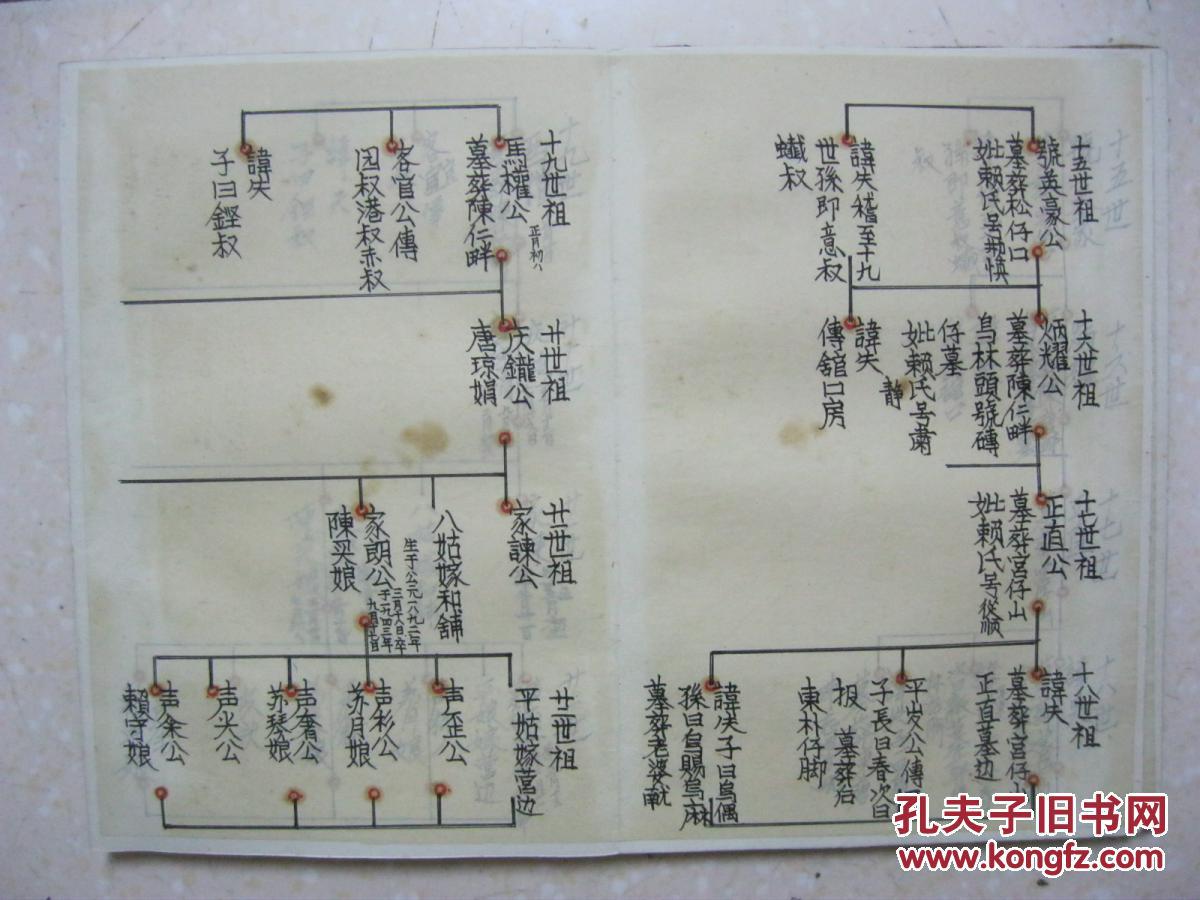 十五世祖
號英豪公
墓葬松仔口
妣賴氏号勤慎
諱失稽至十九
世孫即意叔
蠘叔
十六世祖
炳耀公
墓葬陳仁畔
烏林頭號磚
仔墓
妣賴氏号肅
静
諱失
傳舘口房
十七世祖
正直公
墓葬宮仔山
妣賴氏号後順
十八世祖
諱失
墓葬宮仔山
正直墓边
平岁公傳
子長曰春次曰
报 墓葬后
東朴仔脚
諱失子曰烏偶
孫曰烏賜烏麻
墓葬老婆
十九世祖
馬權公
正月初八
墓葬陳仁畔
客官公傳
因叔港叔赤叔
諱失
子曰鏗叔
廿世祖
庆鑨公
唐琼娟
廿一世祖
家諫公
八姑嫁和舖
家朗公
生于公元一八九二年
三月十六日卒
于一九四三年
九月十五日
陳买娘
廿二世祖
平姑嫁菅边
声歪公
声衫公
苏月娘
声奢公
苏琴娘
声火公
声籴公
賴守娘
孔夫子旧书网
www.kongfz.com